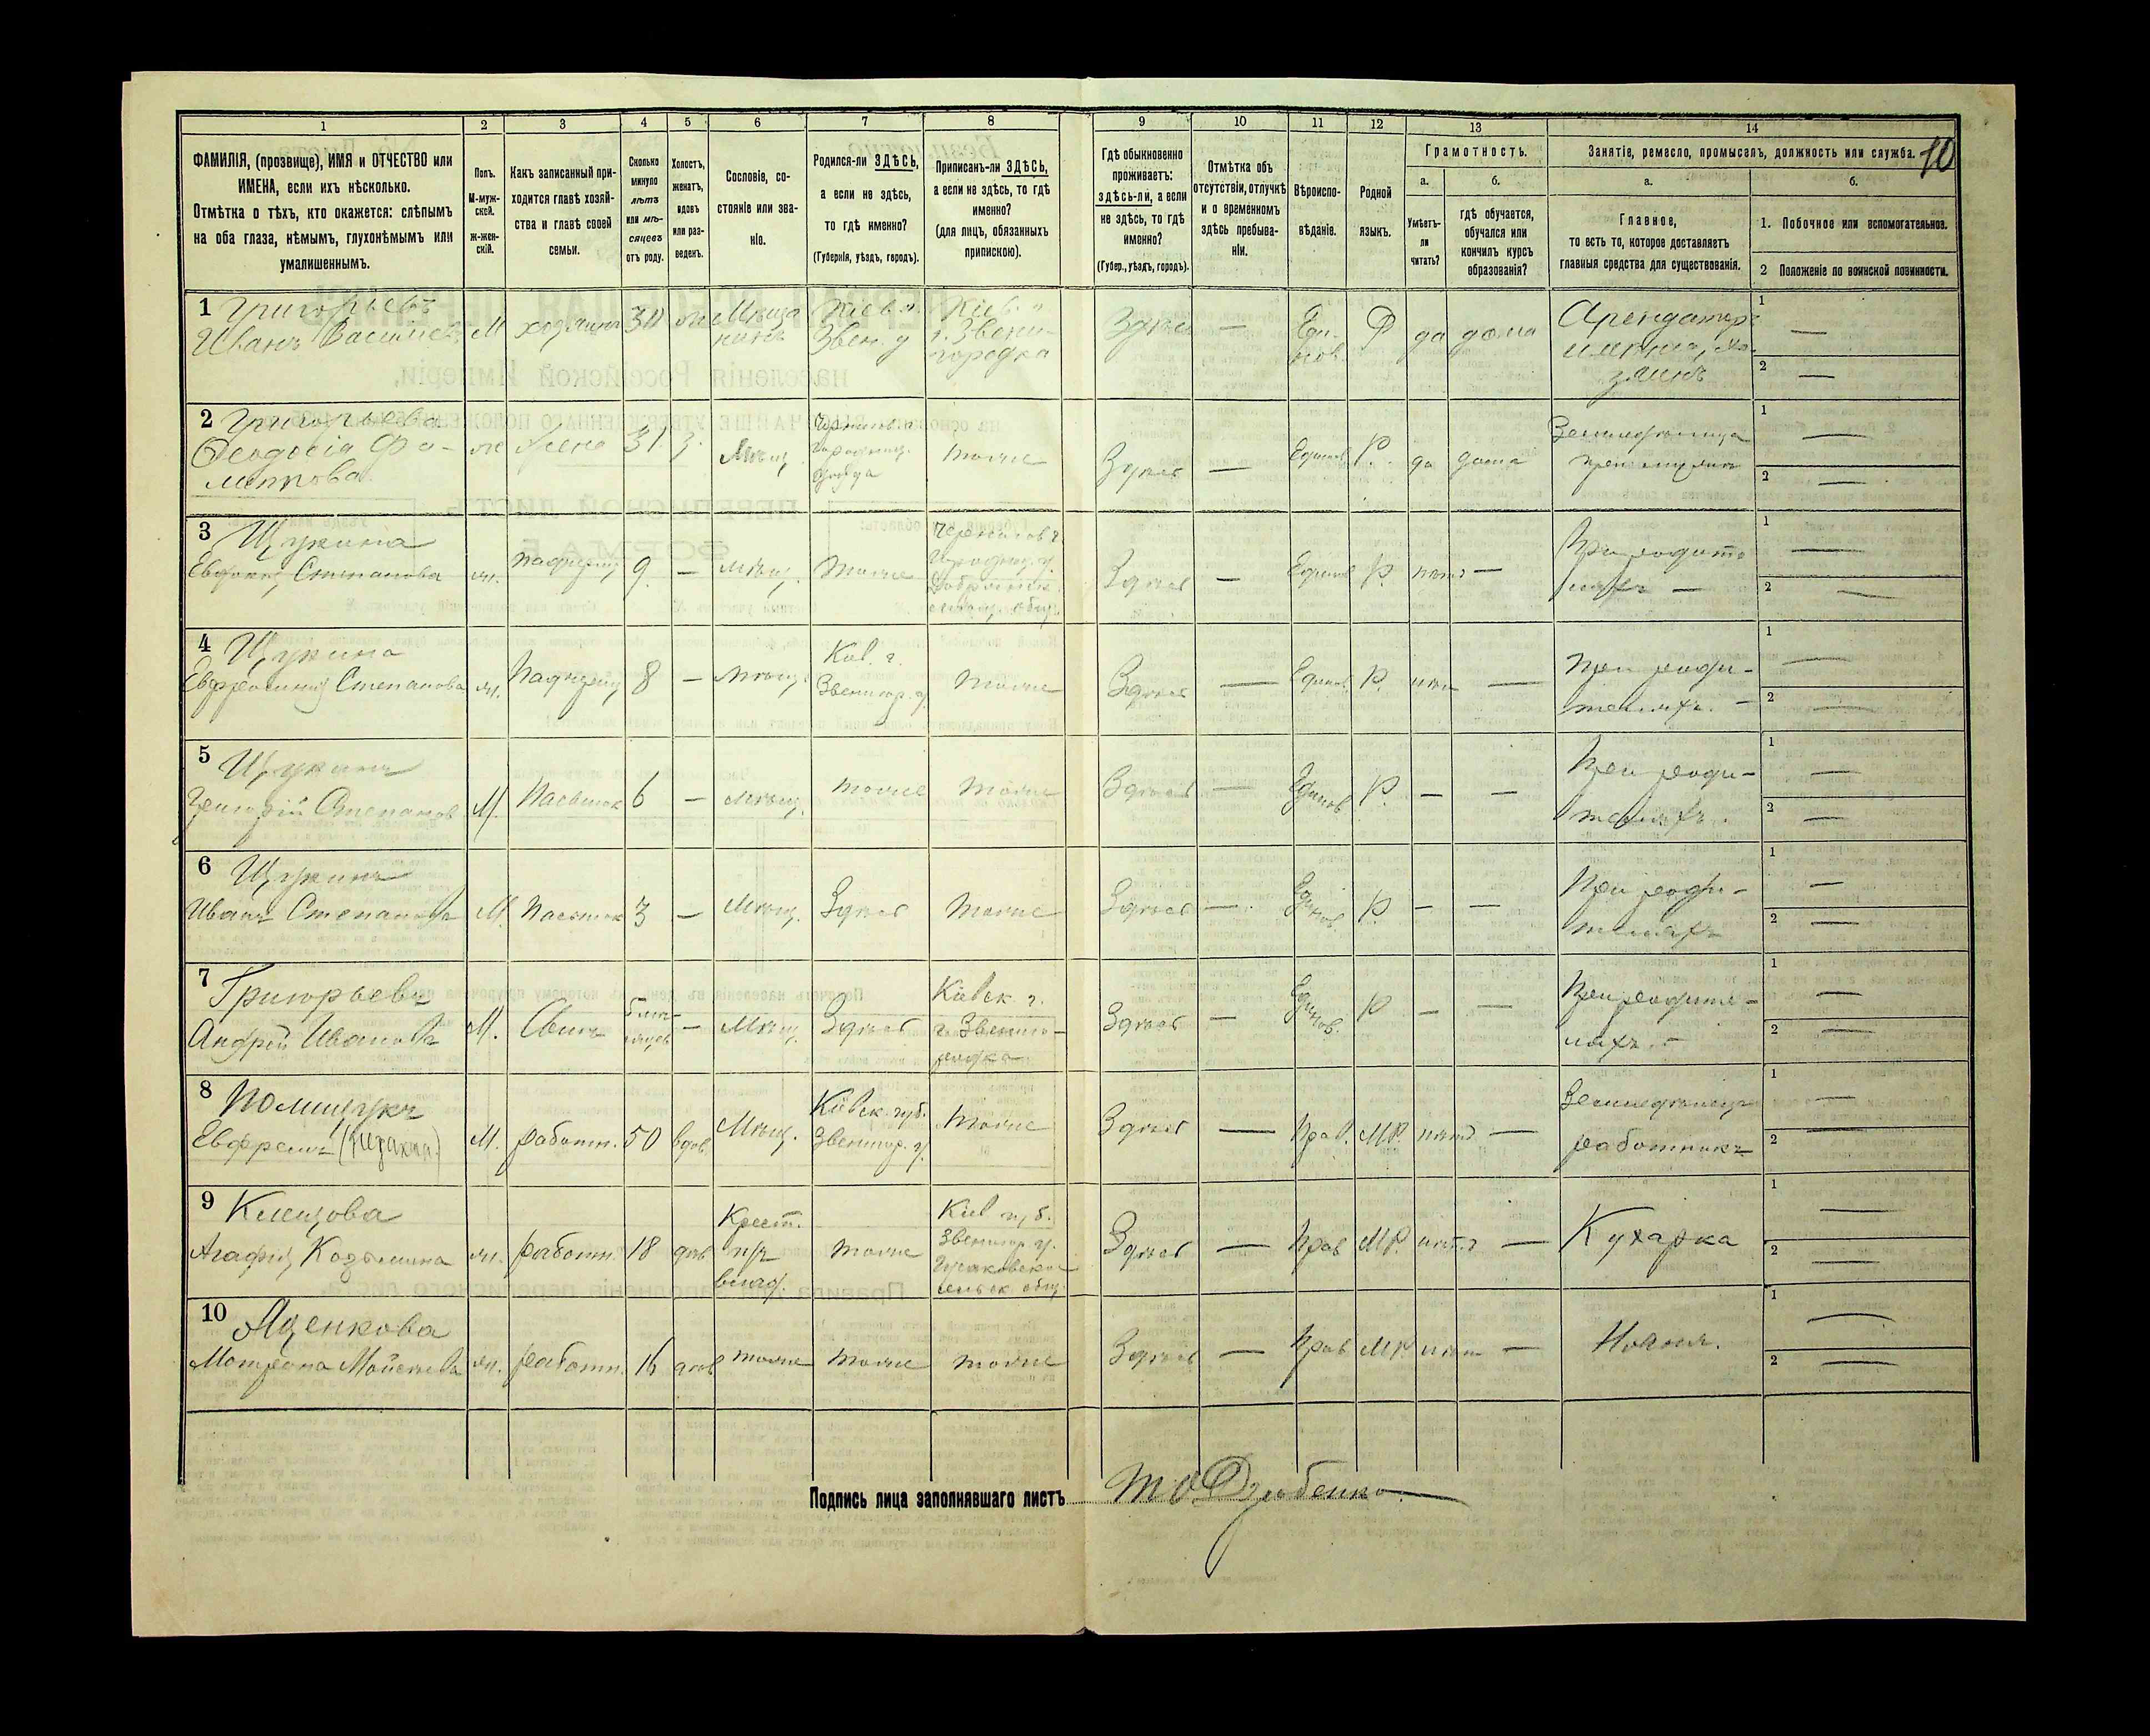 1
2
3
4
5
6
7
8
ФАМИЛІЯ, (прозвище), ИМЯ и ОТЧЕСТВО или
ИМЕНА, если ихъ нѣсколько.
Отмѣтка о тѣхъ, кто окажется: слѣпымъ
на оба глаза, нѣмымъ, глухонѣмымъ или
умалишеннымъ.
Полъ.
М-муж-
ской.
ж-жен-
скій.
Какъ записанный при-
ходится главѣ хозяй-
ства и главѣ своей
семьи.
Сколько
минуло
лѣтъ
или мѣ-
сяцевъ
отъ роду.
Холостъ,
женатъ,
вдовъ
или раз-
веденъ.
Сословіе, со-
стояніе или зва-
ніе.
Родился-ли ЗДѢСЬ,
а если не здѣсь,
то гдѣ именно?
(Губернія, уѣздъ, городъ).
Приписанъ-ли ЗДѢСЬ,
а если не здѣсь, то гдѣ
именно?
(для лицъ, обязанныхъ
припискою).
9
10
11
12
13
14
10
Гдѣ обыкновенно
проживаетъ:
здѣсь-ли, а если
не здѣсь, то гдѣ
именно?
(Губер., уѣздъ, городъ).
Отмѣтка объ
отсутствіи, отлучкѣ
и о временномъ
здѣсь пребыва-
ніи.
Вѣроиспо-
вѣданіе.
Родной
языкъ.
Грамотность.
а.
б.
Умѣетъ-
ли
читать?
гдѣ обучается,
обучался или
кончилъ курсъ
образованія?
Занятіе, ремесло, промыселъ, должность или служба.
а.
б.
Главное,
то есть то, которое доставляетъ
главныя средства для существованія.
1. Побочное или вспомогательное.
2 Положеніе по воинской повинности.
1 Григорьевъ
Иванъ Васильев.
М
хозяинъ
Мѣща
нинъ
Кіев.
Звен. у
Кіев.
г. Звени-
городка
Здѣсь
—
Еди-
нов.
Р
да
дома
Арендатор
имѣнія, хо-
зяинъ
1 —
2 —
2 Григорьева
Феодосія Фо-
ж
жена
31
з.
Мѣщ.
тоже
Здѣсь
—
Единов
Р.
да
дома
1 —
2 —
3 Щукина
Степанова
ж.
Падчериц
9
—
Мѣщ.
тоже
Чернигов г.
Городн. у.
Здѣсь
—
Единов
Р.
нѣтъ
—
При родите
ляхъ —
1 —
2 —
4 Щукина
Евфросинія Степанова
ж.
Падчериц
8
—
Мѣщ.
Кіев. г.
Звенигор. у.
тоже
Здѣсь
—
Единов.
Р.
нѣтъ
—
При роди-
теляхъ. —
1 —
2 —
5 Щукинъ
Григорій Степанов
М.
Пасынок
6
—
Мѣщ.
тоже
тоже
Здѣсь
—
Единов
Р.
—
—
При роди-
теляхъ.
1 —
2 —
6 Щукинъ
Иванъ Степановъ
М.
Пасынок
3
—
Мѣщ.
Здѣсь
тоже
Здѣсь
—
Единов
Р.
—
—
При роди-
теляхъ
1 —
2 —
7 Григорьевъ
Андрей Ивановъ
М.
Сынъ
5 мѣ-
сяцев
—
Мѣщ.
Здѣсь
Кіевск. г.
г. Звениго-
родка
Здѣсь
—
Единов.
Р
—
—
При родите-
ляхъ. —
1 —
2 —
8 Полищукъ
Евфремъ
М.
работн.
50
вдов
Мѣщ.
Кіевск. губ.
Звенигор. у.
тоже
Здѣсь
—
Прав.
М.Р.
нѣтъ
—
Земледѣлец
работникъ
1 —
2 —
9
Агафія Козьмина
ж.
работн.
18
дѣв
Крест.
влад.
тоже
Кіев губ.
Звенигор. у.
сельск. общ.
Здѣсь
—
Прав
М.Р.
нѣтъ
—
Кухарка
1 —
2 —
10 Яценкова
Матрена Мойсеева
ж.
работн.
16
дѣв
тоже
тоже
тоже
Здѣсь
—
Прав
М.Р.
нѣтъ
—
Няня.
1 —
2 —
Подпись лица заполнявшаго листъ